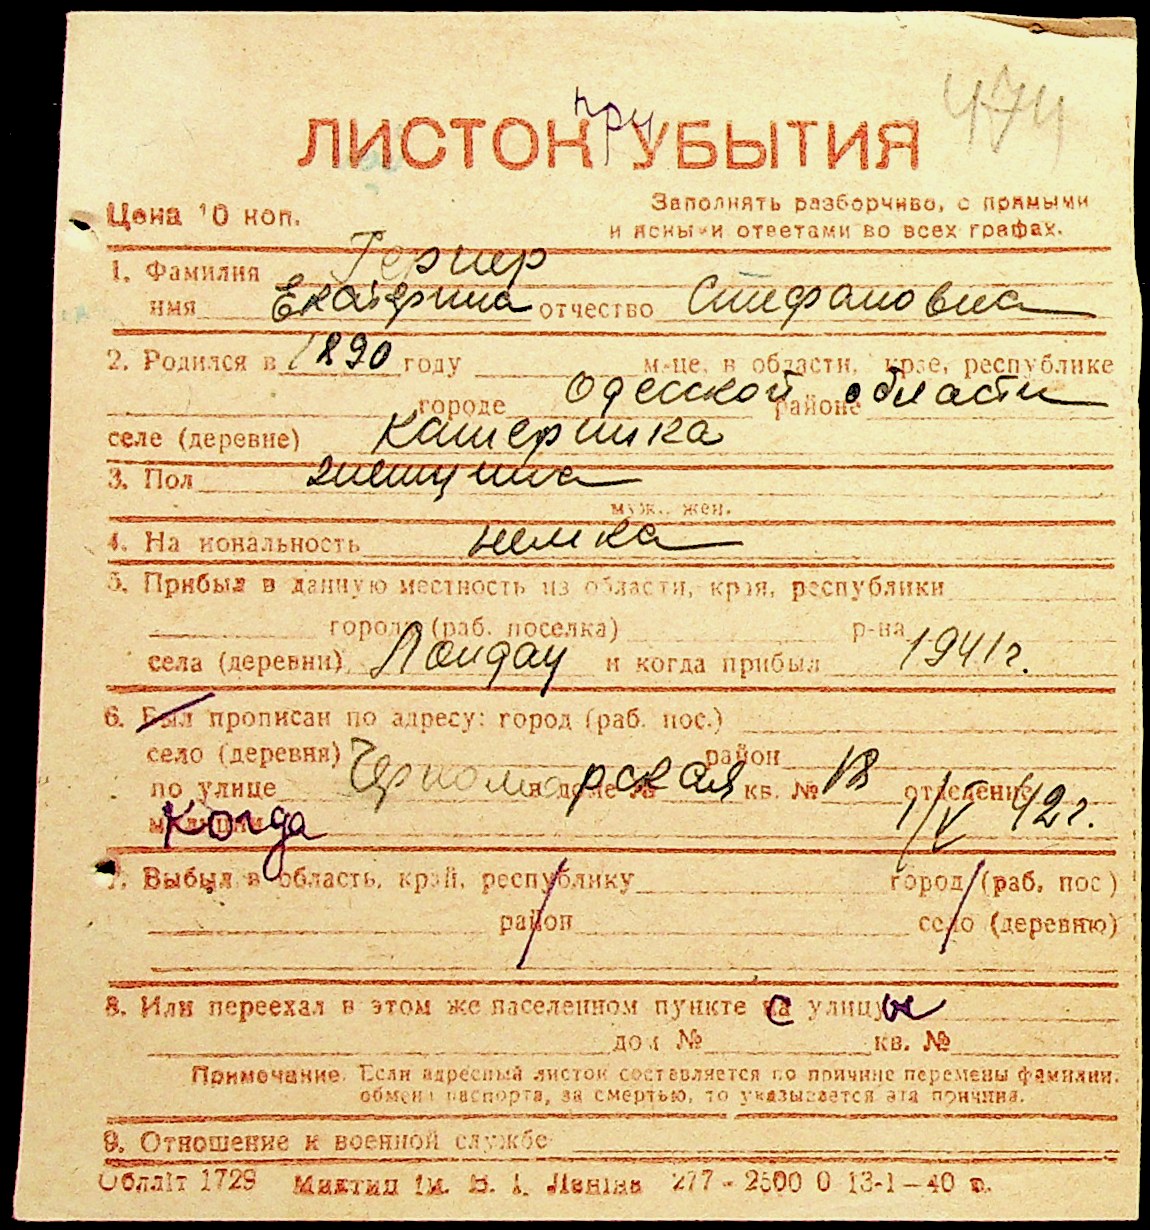 474
при
ЛИСТОК УБЫТИЯ
Цена 10 коп.
Заполнять разборчиво, с прямыми
и ясными ответами во всех графах.
1. Фамилия Гернер
имя Екатерина отчество Стифановна
2. Родился в 1890 году м-це, в области, крае, республике
городе Одесской районе области
селе (деревне) Катеринка
3. Пол женщина
муж., жен.
4. Национальность немка
5. Прибыл в данную местность из области, края, республики
города (раб. поселка) р-на
села (деревни) Ландау и когда прибыл 1941 г.
6. Был прописан по адресу: город (раб. пос.)
село (деревня) район
по улице Черноморская в доме № кв. № 18 отделение
милиции Когда 1/V 42 г.
7. Выбыл в область, край, республику город (раб. пос)
район село (деревню)
8. Или переехал в этом же населенном пункте с улицы
дом № кв. №
Примечание. Если адресный листок составляется по причине перемены фамилии,
обмена паспорта, за смертью, то указывается эта причина.
9. Отношение к военной службе
Обллiт 1729 Миктип iм. В. I. Ленiна 277 - 2500 0 13-1-40 р.